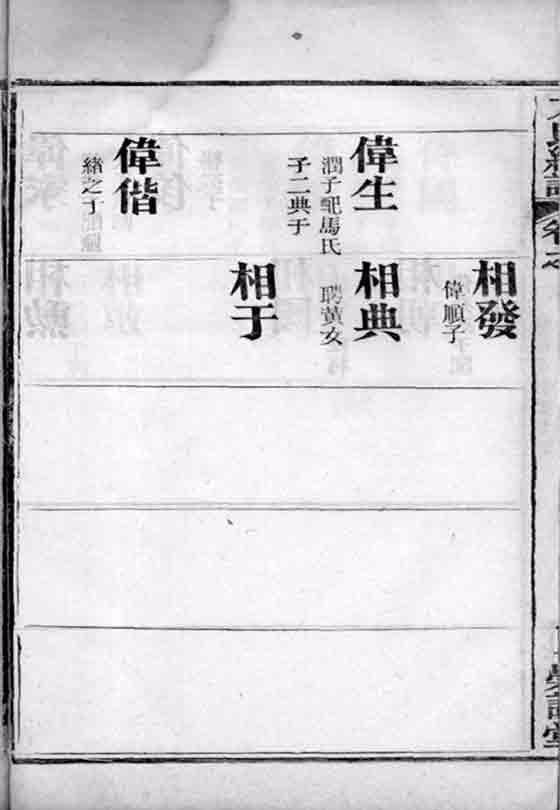 相發
偉順子
偉生
潤子配馬氏
子二典于
相典
聘黃女
相于
偉偕
緒之子